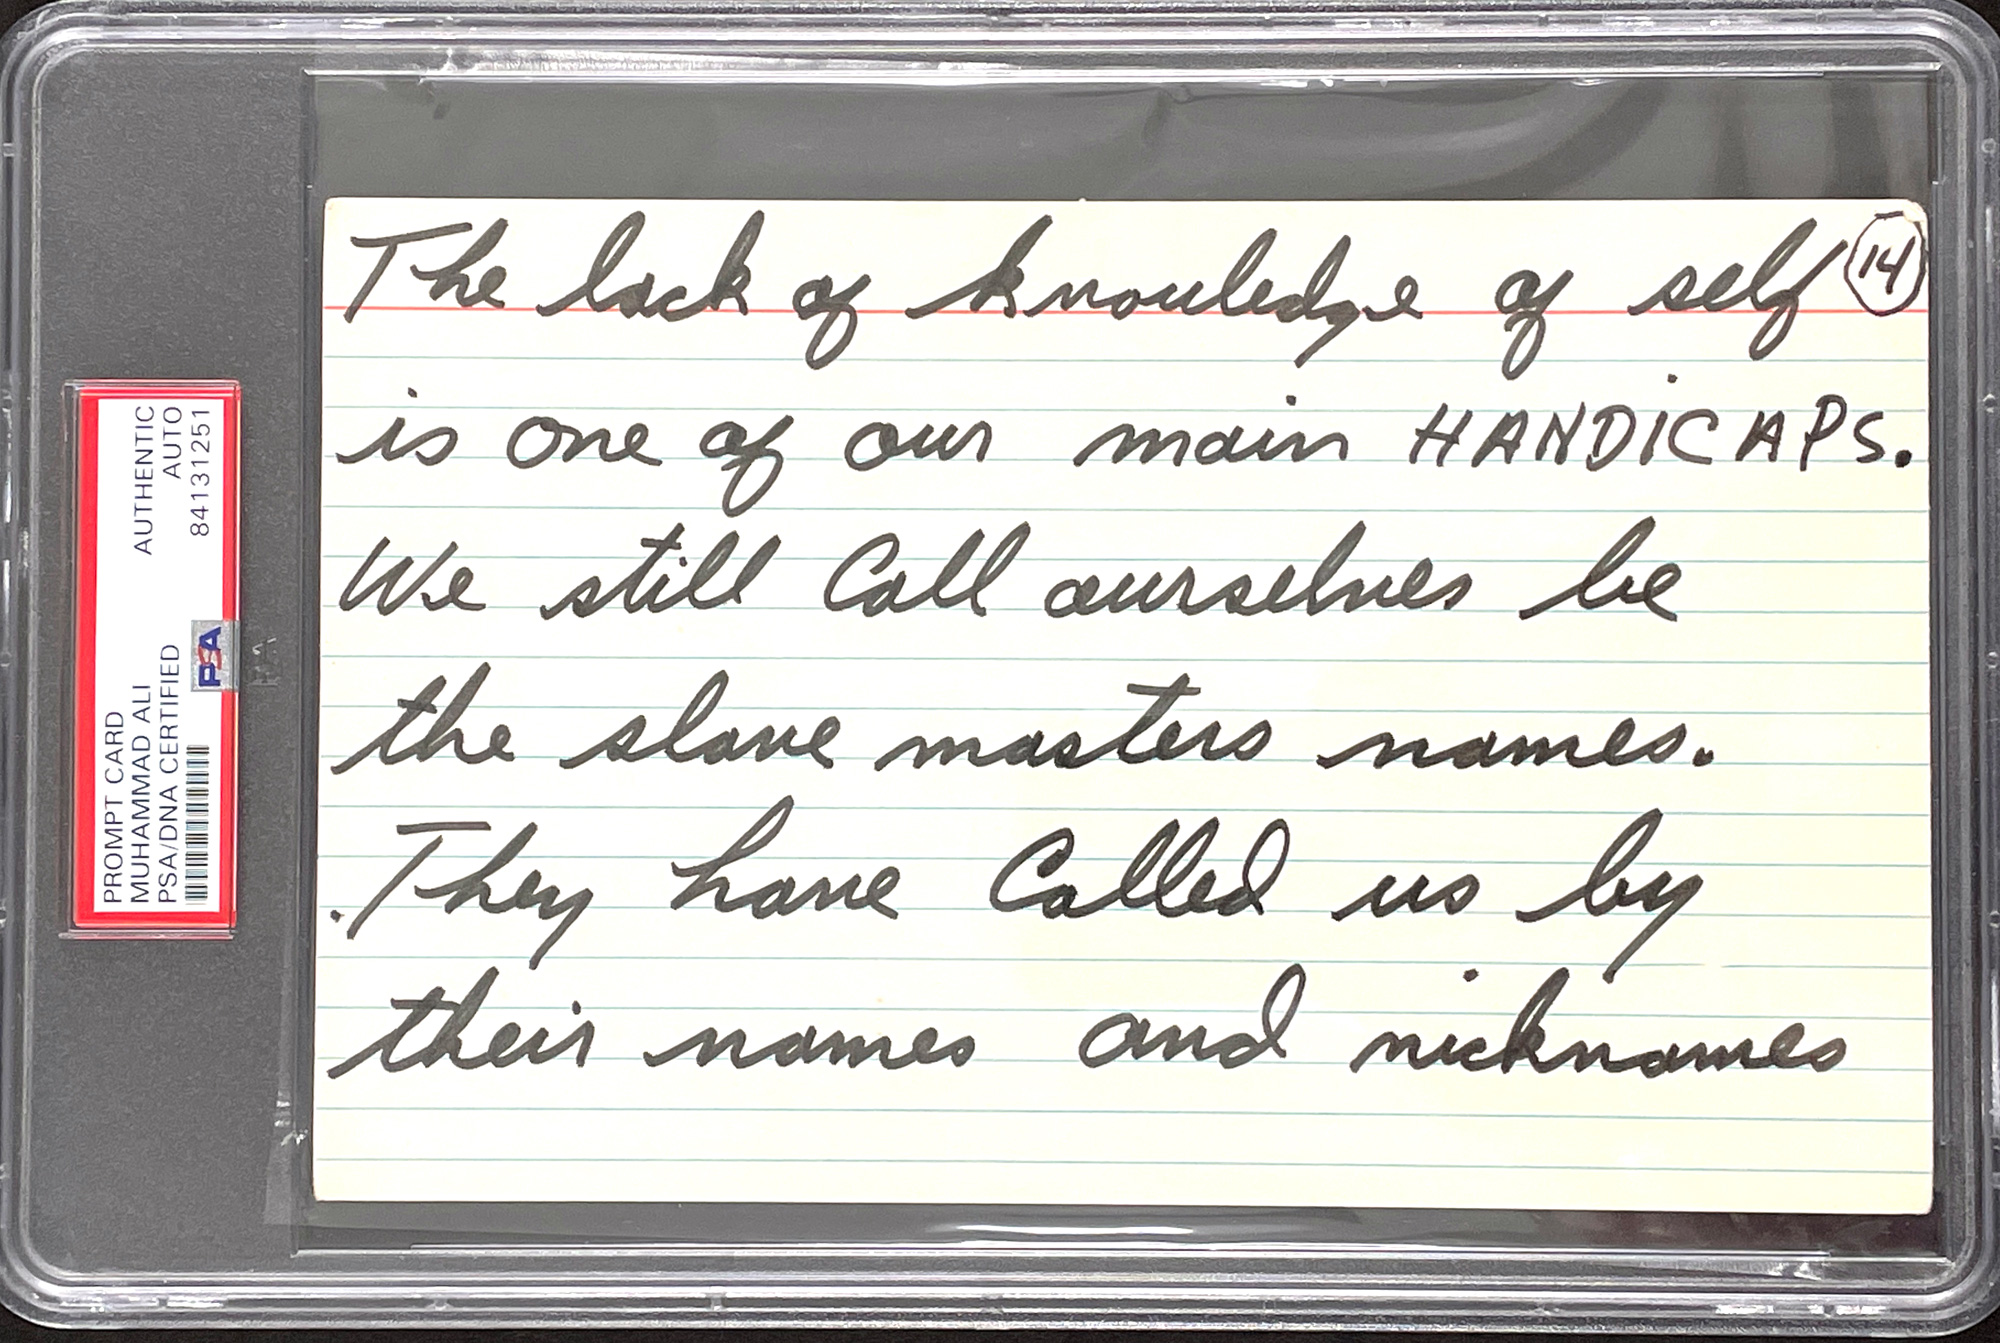 The lack of knowledge of self 14
is one of our main HANDICAPS.
We still Call ourselves be
the slave masters names.
.They have Called us by
their names and nicknames
PROMPT CARD
MUHAMMAD ALI AUTHENTIC
PSA/DNA CERTIFIED AUTO
84131251
PSA